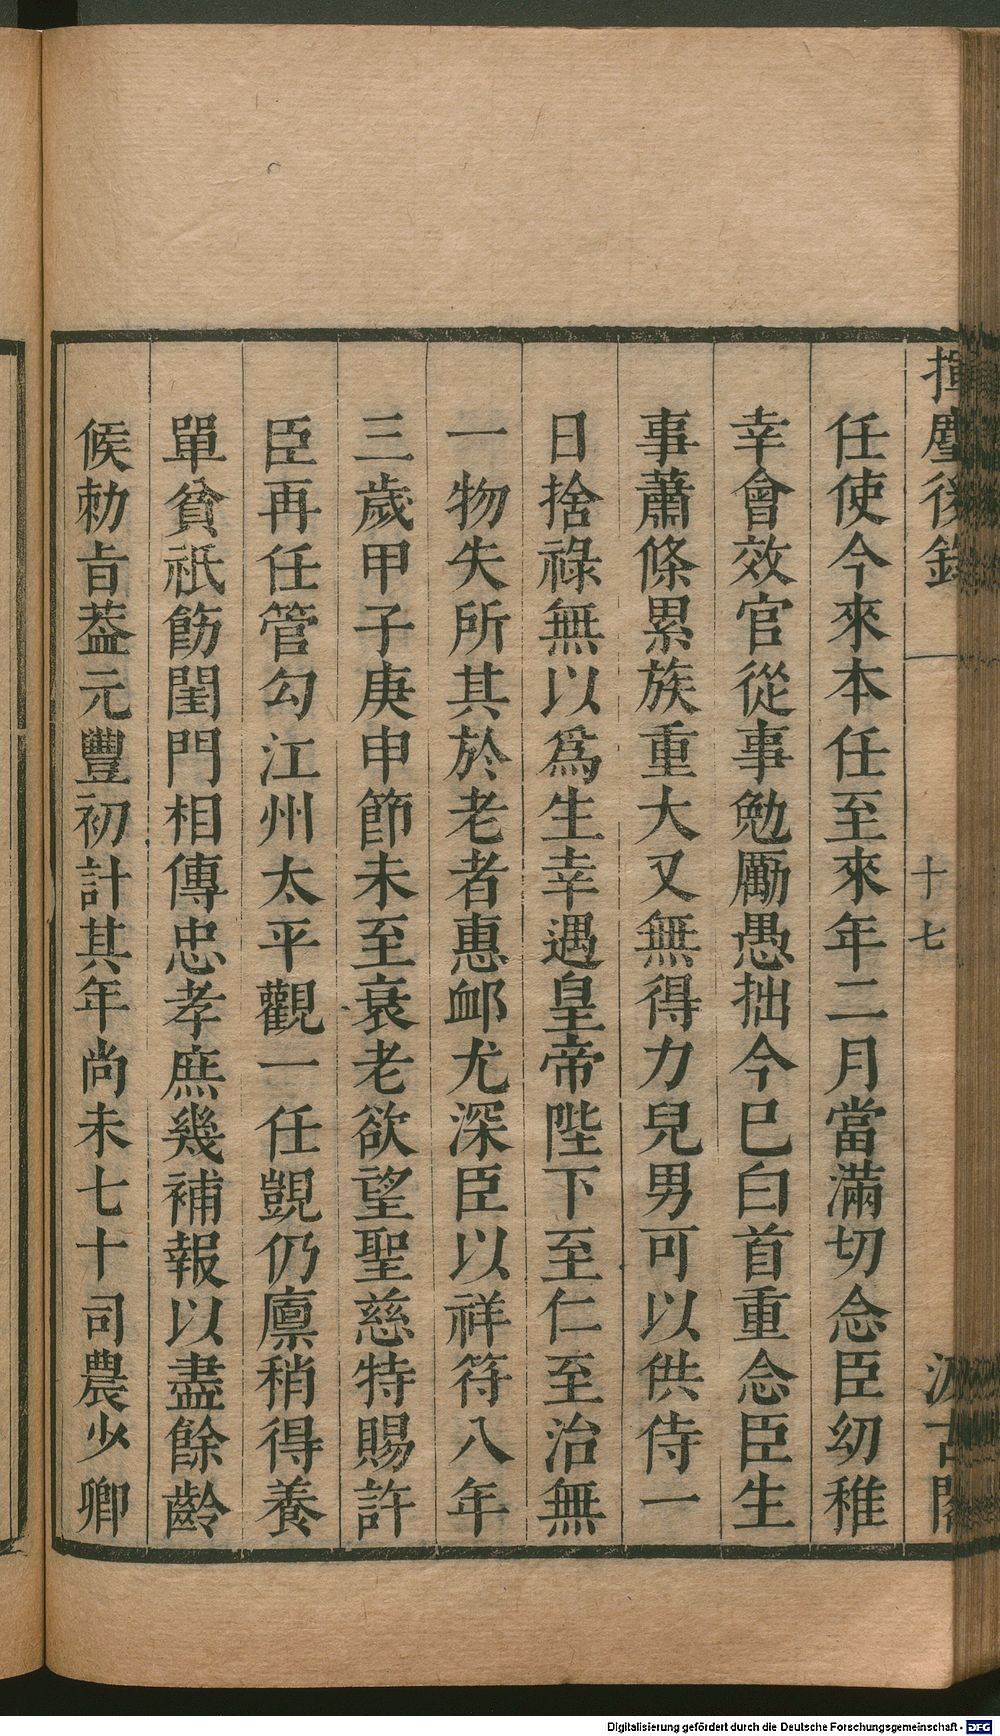 揮麈後錄
十七
汲古閣
任使今來本任至來年二月當滿切念臣幼稚
幸會效官從事勉勵愚拙今巳白首重念臣生
事蕭條累族重大又無得力兒男可以供侍一
日捨祿無以爲生幸遇皇帝陛下至仁至治無
一物失所其於老者惠䘏尤深臣以祥符八年
三歲甲子庚申節未至衰老欲望聖慈特賜許
臣再任管勾江州太平觀一任覬仍廪稍得養
單貧祇飭閨門相傳忠孝庶幾補報以盡餘齡
候勅㫖葢元豐初計其年尚未七十司農少卿
Digitalisierung gefördert durch die Deutsche Forschungsgemeinschaft - DFG